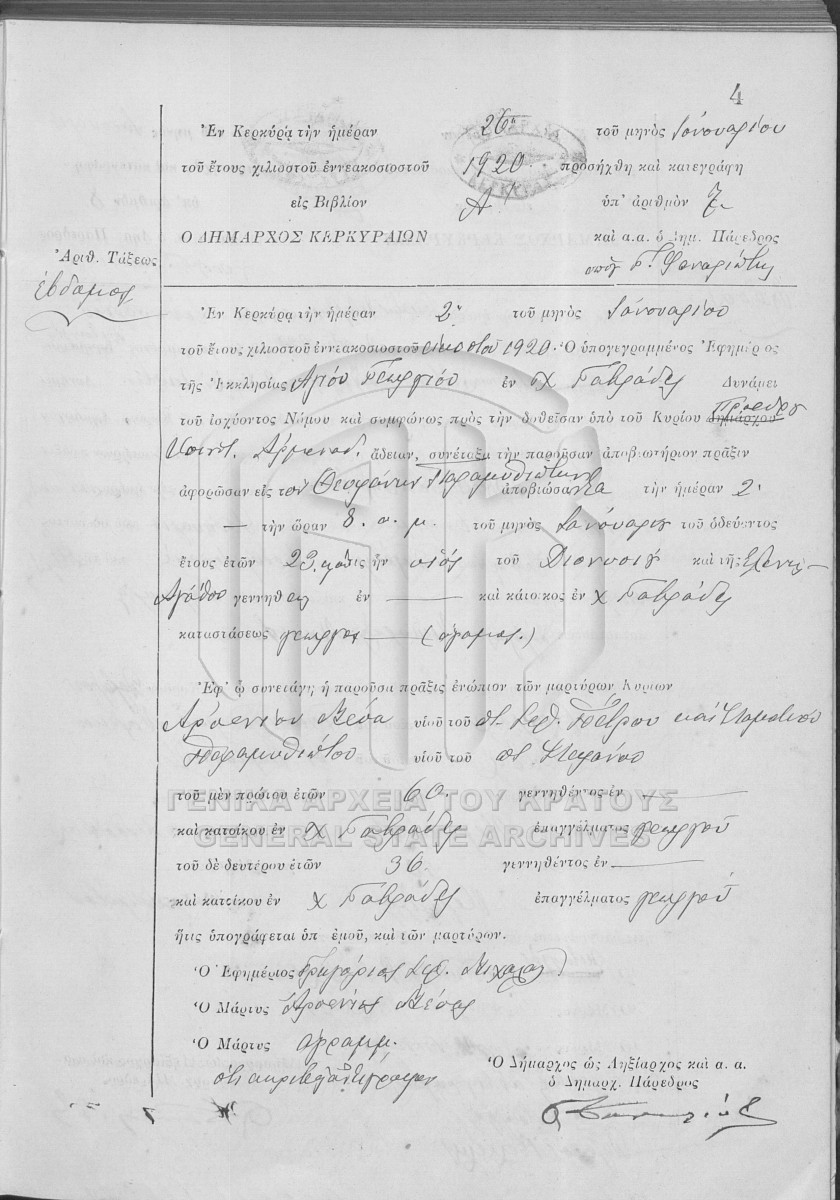 4
Ἐν Κερκύρᾳ τὴν ἡμέραν 26η τοῦ μηνὸς Ἰανουαρίου
τοῦ ἔτους χιλιοστοῦ ἐννεακοσιοστοῦ 1920 προσήχθη καὶ κατεγράφη
εἰς Βιβλίον Α΄ ὑπ' ἀριθμὸν 7
Ο ΔΗΜΑΡΧΟΣ ΚΕΡΚΥΡΑΙΩΝ καὶ α.α. ὁ Δημ. Πάρεδρος
Ἀριθ. Τάξεως
ἕβδομος
Ἐν Κερκύρᾳ τὴν ἡμέραν 2α τοῦ μηνὸς Ἰανουαρίου
τοῦ ἔτους χιλιοστοῦ ἐννεακοσιοστοῦ εἰκοστοῦ 1920. Ὁ ὑπογεγραμμένος Ἐφημέριος
τῆς Ἐκκλησίας Ἁγίου Γεωργίου ἐν χ Γαβράδες Δυνάμει
τοῦ ἰσχύοντος Νόμου καὶ συμφώνως πρὸς τὴν δοθεῖσαν ὑπὸ τοῦ Κυρίου Δημάρχου Προέδρου
Κοινότ. Ἀρμενάδ. ἄδειαν, συνέταξα τὴν παροῦσαν ἀποβιωτήριον πρᾶξιν
ἀφορῶσαν εἰς τὸν Θεοφάνην Παραμυθιώτην ἀποβιώσαντα τὴν ἡμέραν 2α
— τὴν ὥραν 8. π. μ. τοῦ μηνὸς Ἰανουαρίου τοῦ ὁδεύοντος
ἔτους ἐτῶν 23 ὅστις ἦν υἱὸς τοῦ Διονυσίου καὶ τῆς Ἑλένης
Ἀγάθου γεννηθεὶς ἐν — καὶ κάτοικος ἐν χ Γαβράδες
καταστάσεως γεωργὸς — (ἄγαμος.)
Ἐφ' ᾧ συνετάγη ἡ παροῦσα πρᾶξις ἐνώπιον τῶν μαρτύρων Κυρίων
Ἀρσενίου Δέσα υἱοῦ τοῦ π. Σεβ. Πέτρου καὶ Σταματίου
Παραμυθιώτου υἱοῦ τοῦ π. Στεφάνου
τοῦ μὲν πρώτου ἐτῶν 60 γεννηθέντος ἐν —
καὶ κατοίκου ἐν χ Γαβράδες ἐπαγγέλματος γεωργοῦ
τοῦ δὲ δευτέρου ἐτῶν 36 γεννηθέντος ἐν —
καὶ κατοίκου ἐν χ Γαβράδες ἐπαγγέλματος γεωργοῦ
ἥτις ὑπογράφεται ὑπ' ἐμοῦ, καὶ τῶν μαρτύρων.
Ὁ Ἐφημέριος Γρηγόριος Σεβ.
Ὁ Μάρτυς Ἀρσένιος Δέσας
Ὁ Μάρτυς ἀγράμμ.
ὅτι ἀκριβὲς ἀντίγραφον
Ὁ Δήμαρχος ὡς Ληξίαρχος καὶ α. α.
ὁ Δημαρχ. Πάρεδρος
ΓΕΝΙΚΑ ΑΡΧΕΙΑ ΤΟΥ ΚΡΑΤΟΥΣ
GENERAL STATE ARCHIVES